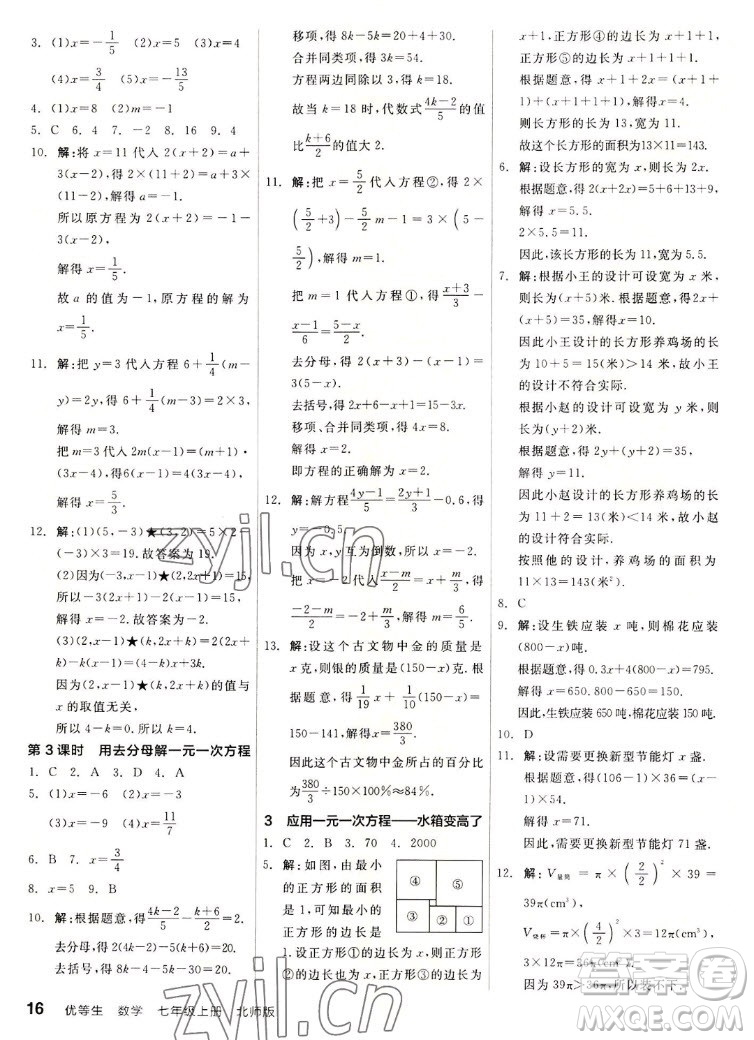 3. (1)x=-1/5 (2)x=
(4)x=3/4 (5)x=-13/5
4. (1)x=8 (2)m=-1
5. C 6. 4 7. -2 8. 16 9. 4
10. 解:将 x=11 代入 2(x+2)=a+
3(x-2),得 2×(11+2)=a+3×
(11-2),解得 a=-1.
所以原方程为 2(x+2)=-1-
3(x-2),
解得 x=1/5.
故 a 的值为-1,原方程的解为
x=1/5.
11. 解:把 y=3 代入方程 6+1/4(m-
y)=2y,得 6+1/4(m-3)=2×3,
解得 m=3.
把 m=3 代入 2m(x-1)=(m+1)·
(3x-4),得 6(x-1)=4(3x-4),
解得 x=5/3.
12. 解:(1)(5,-3)★(3,2)=5×2-
(-3)×3=19.故答案为 19.
(2)因为(2,-1)★(x,x+1)=15,
所以 2(x+1)-(-1)·x=15,
解得 x=
(3)(2,x-1)★(k,2x+k)=
2(2x+k)-(x-1)·k=
因为(2,x-1)★(k,2x+k)的值与
x 的取值无关,
所以 4-k=0.所以 k=4.
第 3 课时 用去分母解一元一次方程
1. C 2. A 3. D 4. D
5. (1)x=-6 (2)x=-9
(3)x=-3 (4)x=11/7
6. B 7. x=3/4
8. x=5 9. -1
10. 解:根据题意,得(4k-2)/5-(k+6)/2=1,
去分母,得 2(4k-2)-5(k+6)=10,
去括号,得 8k-4-5k-30=10,
移项,得 8k-5k=10+4+30,
合并同类项,得 3k=44.
方程两边同除以 3,得 k=
故当 k= 时,代数式(4k-2)/5的值
比(k+6)/2的值大 1.
11. 解:把 x=5/2代入方程②,得 2×
(5/2+3)-5/2m-1=3×(5-
5/2),解得 m=1.
把 m=1 代入方程①,得(x+3)/3-
(x-1)/6=(5-x)/2.
去分母,得 2(x+3)-(x-1)=3(5-x).
去括号,得 2x+6-x+1=15-3x.
移项、合并同类项,得 4x=8.
解得 x=2.
即方程的正确解为 x=2.
12. 解:解方程(4y-1)/5=(2y+1)/2-0.6,得
y=-0.5.
因为 x,y 互为倒数,所以 x=-2.
把 x=-2 代入(x-m)/2=x+m/3,得
(-2-m)/2=-2+m/3,解得 m=6/5.
13. 解:设这个古文物中金的质量是
x 克,则银的质量是(150-x)克.根
据题意,得 1/19x+1/10(150-x)=
150-141,解得 x=380/3.
因此这个古文物中金所占的百分比
为380/3÷150×100%≈84.4%.
3 应用一元一次方程——水箱变高了
1. C 2. B 3. 70 4. 2000
5. 解:如图,由最小
的正方形的面积
是 1,可知最小的
正方形的边长为
1.设正方形①的边长为 x,正方形②
的边长为 x,正方形③的边长为
④ ⑤ ③ ② ①
x+1,正方形④的边长为 x+1+1,
正方形⑤的边长为 x+1+1+1.
根据题意,得(x+1+1)+(x+1+
1+1)=x+x+(x+1),解得 x=4.
则长方形的长为 13,宽为 11.
故这个长方形的面积为13×11=143.
6. 解:设长方形的宽为 x,则长为 2x.
根据题意,得 2(x+2x)=3+5+7+9+9.
解得 x=5.5.
2×5.5=11.
因此,该长方形的长为 11,宽为 5.5.
7. 解:根据小王的设计可设宽为 x 米,
则长为(x+5)米.根据题意,得
2x+(x+5)=35,
解得 x=10.
因此小王设计的长方形养鸡场的长
为 10+5=15(米)>14 米,故小王
的设计不符合实际.
根据小赵的设计可设宽为 y 米,则
长为(y+2)米.
根据题意,得 2y+(y+2)=35,
解得 y=11.
因此小赵设计的长方形养鸡场的长
为 11+2=13(米)<14 米,故小赵
的设计符合实际.
按照他的设计,养鸡场的面积为
11×13=143(米²).
8. C
9. 解:设生铁应装 x 吨,则棉花应装
(800-x)吨.
根据题意,得 0.3x+4(800-x)=795.
解得 x=650.800-x=150.
因此,生铁应装 650 吨,棉花应装 150 吨.
10. D
11. 解:设需要更换新型节能灯 x 盏.
根据题意,得(106-1)×36=
70(x-1),
解得 x=55.
因此需要更换新型节能灯
12. 解:V量筒=π×(2/2)²×39=
39π(cm³),
V烧杯=π×(4/2)²×3=
12π(cm³).
因为 39π>12π,所以装不下.
16 优等生 数学 七年级上册 北师版
zyjl.cn
zyjl.cn
答案圈